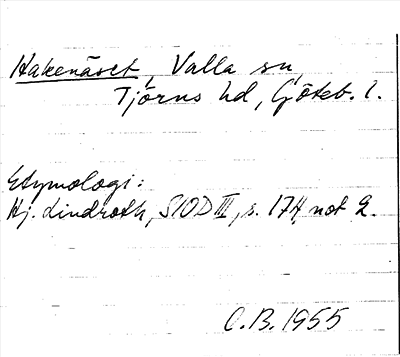 Hakenäset, Valla sn,
Tjörns hd, Göteb. l.
Etymologi:
Hj. Lindroth, SIOD III, s. 174 not 2.
C.B. 1955